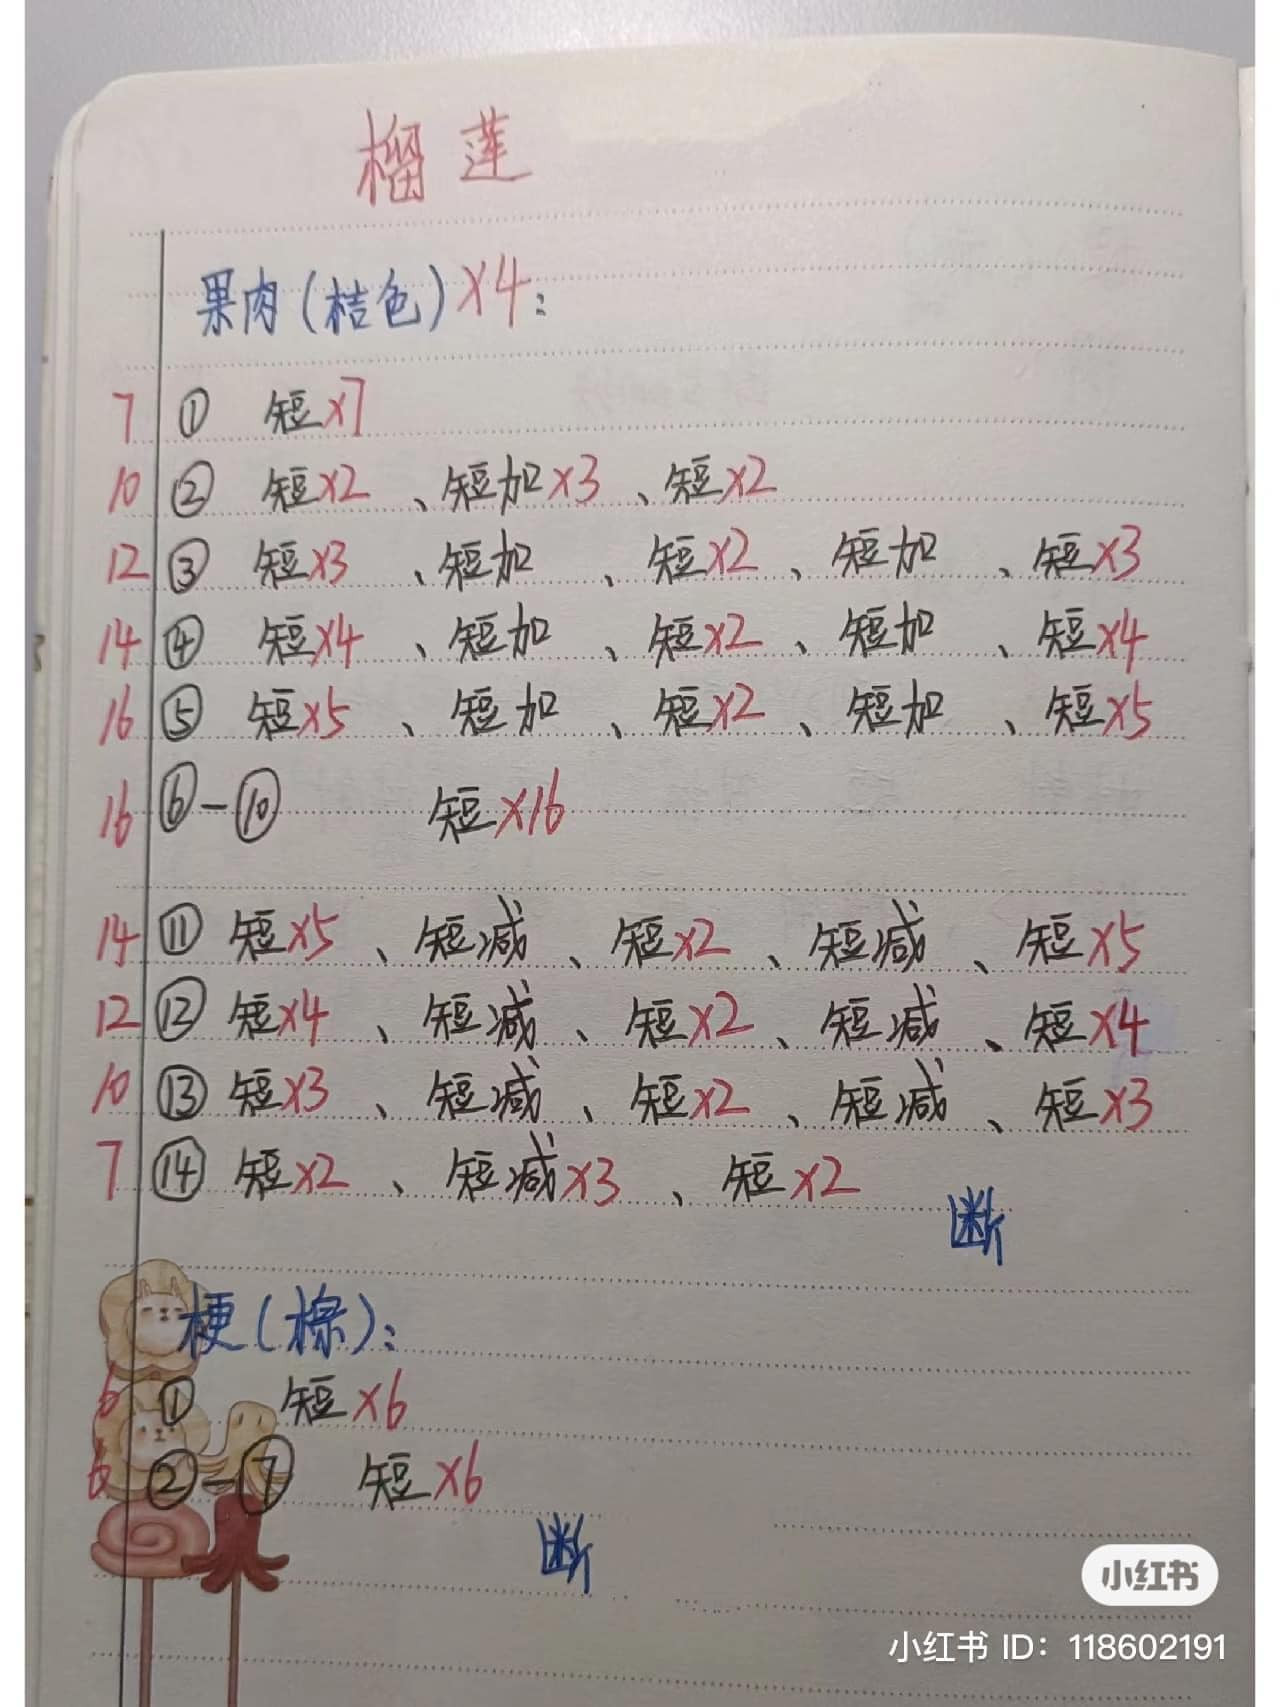 榴莲
果肉(桔色)×4:
7 ① 短×7
10 ② 短×2、短加×3、短×2
12 ③ 短×3、短加、短×2、短加、短×3
14 ④ 短×4、短加、短×2、短加、短×4
16 ⑤ 短×5、短加、短×2、短加、短×5
16 ⑥-⑩ 短×16
14 ⑪ 短×5、短减、短×2、短减、短×5
12 ⑫ 短×4、短减、短×2、短减、短×4
10 ⑬ 短×3、短减、短×2、短减、短×3
7 ⑭ 短×2、短减×3、短×2
断
梗(棕):
6 ① 短×6
6 ②-⑦ 短×6
断
小红书
小红书 ID: 118602191